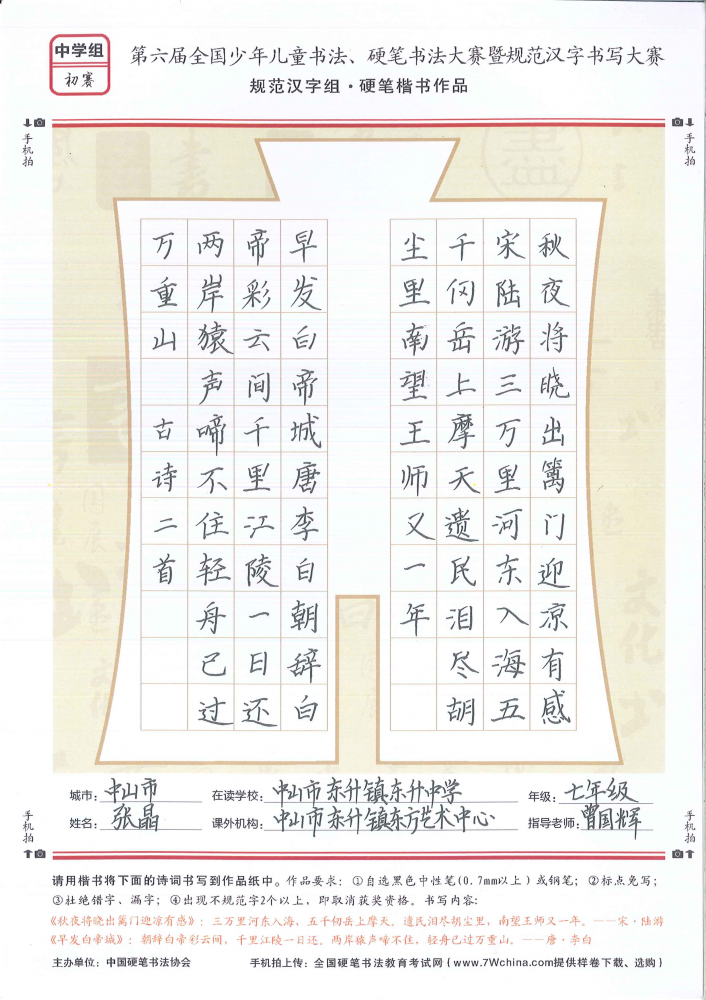 中学组
初赛
第六届全国少年儿童书法、硬笔书法大赛暨规范汉字书写大赛
规范汉字组·硬笔楷书作品
手机拍
手机拍
秋夜将晓出篱门迎凉有感
宋陆游三万里河东入海五
千仞岳上摩天遗民泪尽胡
尘里南望王师又一年
早发白帝城唐李白朝辞白
帝彩云间千里江陵一日还
两岸猿声啼不住轻舟已过
万重山 古诗二首
城市：中山市 在读学校：中山市东升镇东升中学 年级：七年级
姓名：张晶 课外机构：中山市东升镇东方艺术中心 指导老师：曾国辉
手机拍
手机拍
请用楷书将下面的诗词书写到作品纸中。作品要求：①自选黑色中性笔(0.7mm以上)或钢笔；②标点免写；
③杜绝错字、漏字；④出现不规范字2个以上，即取消获奖资格。书写内容：
《秋夜将晓出篱门迎凉有感》：三万里河东入海，五千仞岳上摩天。遗民泪尽胡尘里，南望王师又一年。——宋·陆游
《早发白帝城》：朝辞白帝彩云间，千里江陵一日还。两岸猿声啼不住，轻舟已过万重山。——唐·李白
主办单位：中国硬笔书法协会 手机拍上传：全国硬笔书法教育考试网{www.7Wchina.com提供样卷下载、选购}